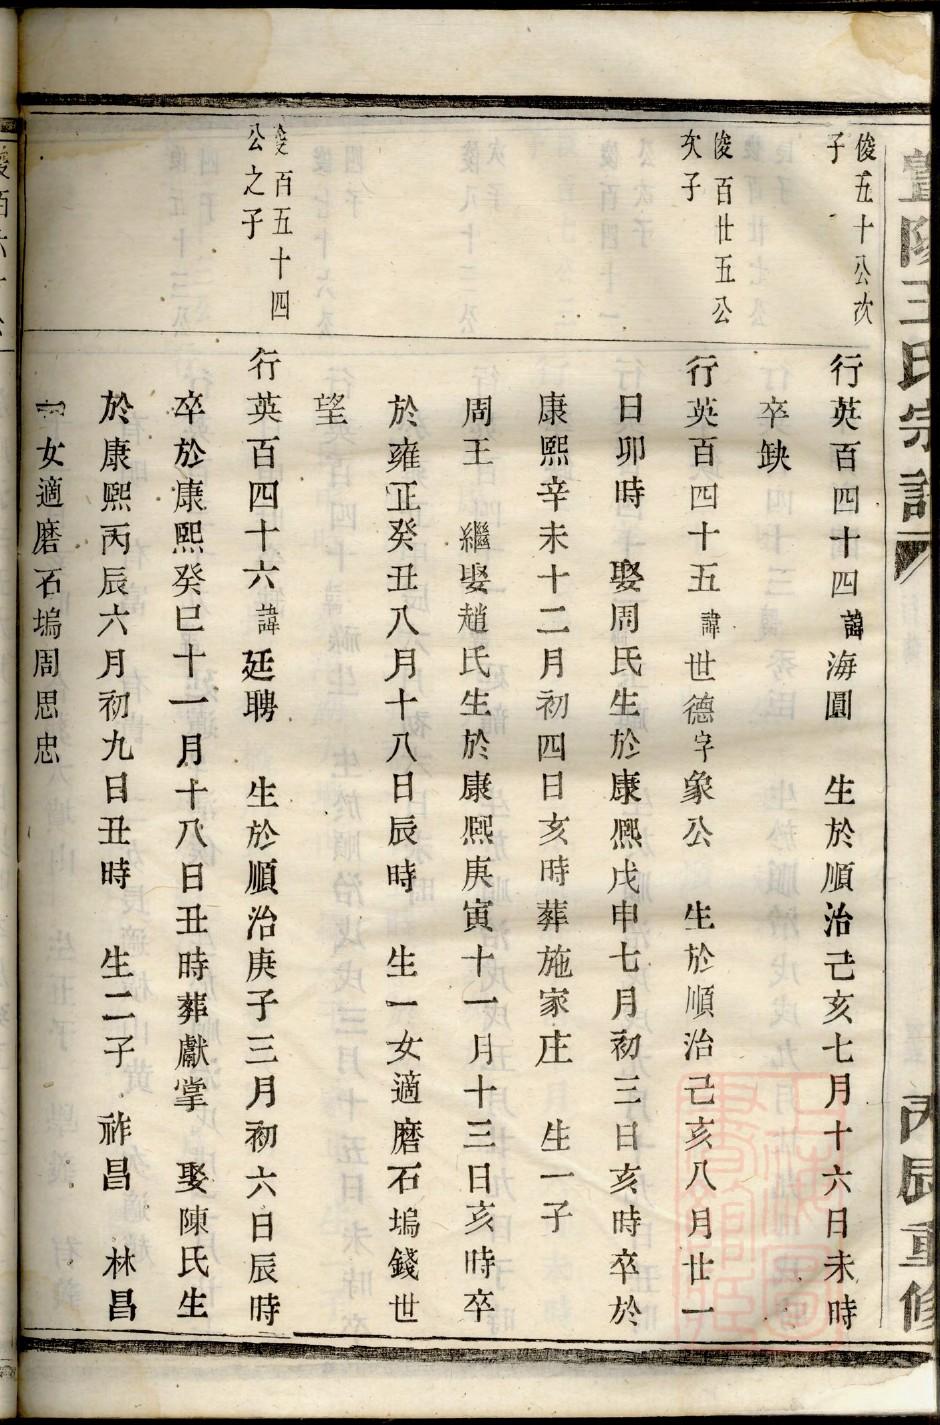 暨陽王氏宗譜
丙辰重修
俊五十公次
子
行英百四十四諱海圓 生於順治己亥七月十六日未時
卒缺
俊百廿五公
次子
行英百四十五諱世德字象公 生於順治己亥八月廿一
日卯時 娶周氏生於康熙戊申七月初三日亥時卒於
康熙辛未十二月初四日亥時葬施家庄 生一子
周王 繼娶趙氏生於康熙庚寅十一月十三日亥時卒
於雍正癸丑八月十八日辰時 生一女適磨石塢錢世
望
俊百五十四
公之子
行英百四十六諱廷聘 生於順治庚子三月初六日辰時
卒於康熙癸巳十一月十八日丑時葬獻掌 娶陳氏生
於康熙丙辰六月初九日丑時 生二子 祚昌 林昌
一女適磨石塢周思忠